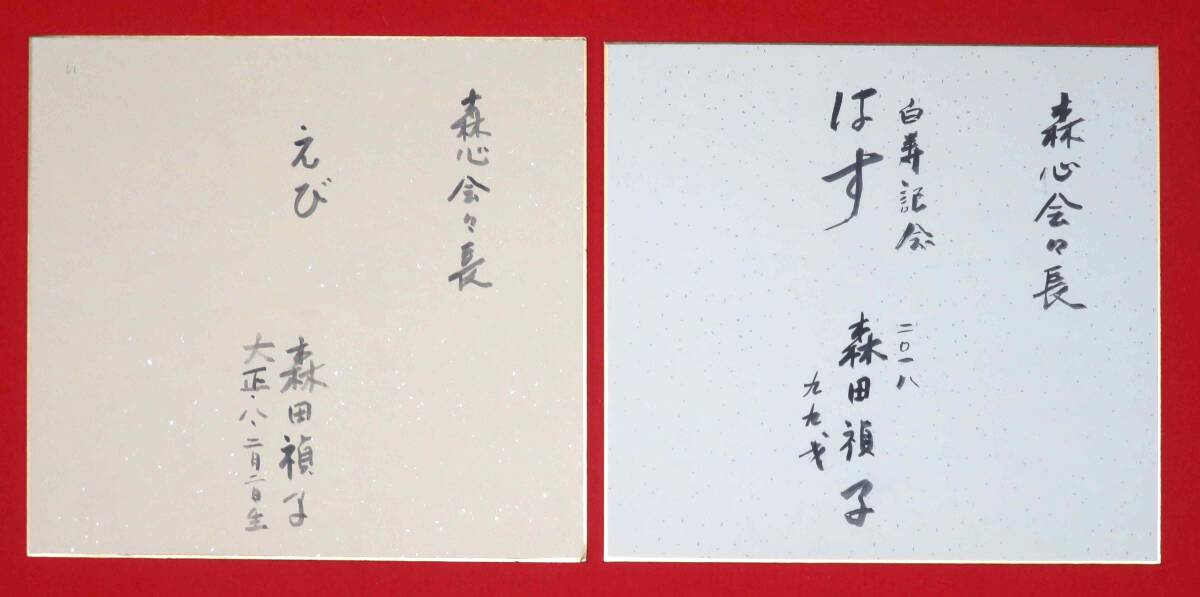 森心会々長
えび
森田禎子
大正・八・二月二日生
森心会々長
白寿記念
はす
二〇一八
森田禎子
九九才